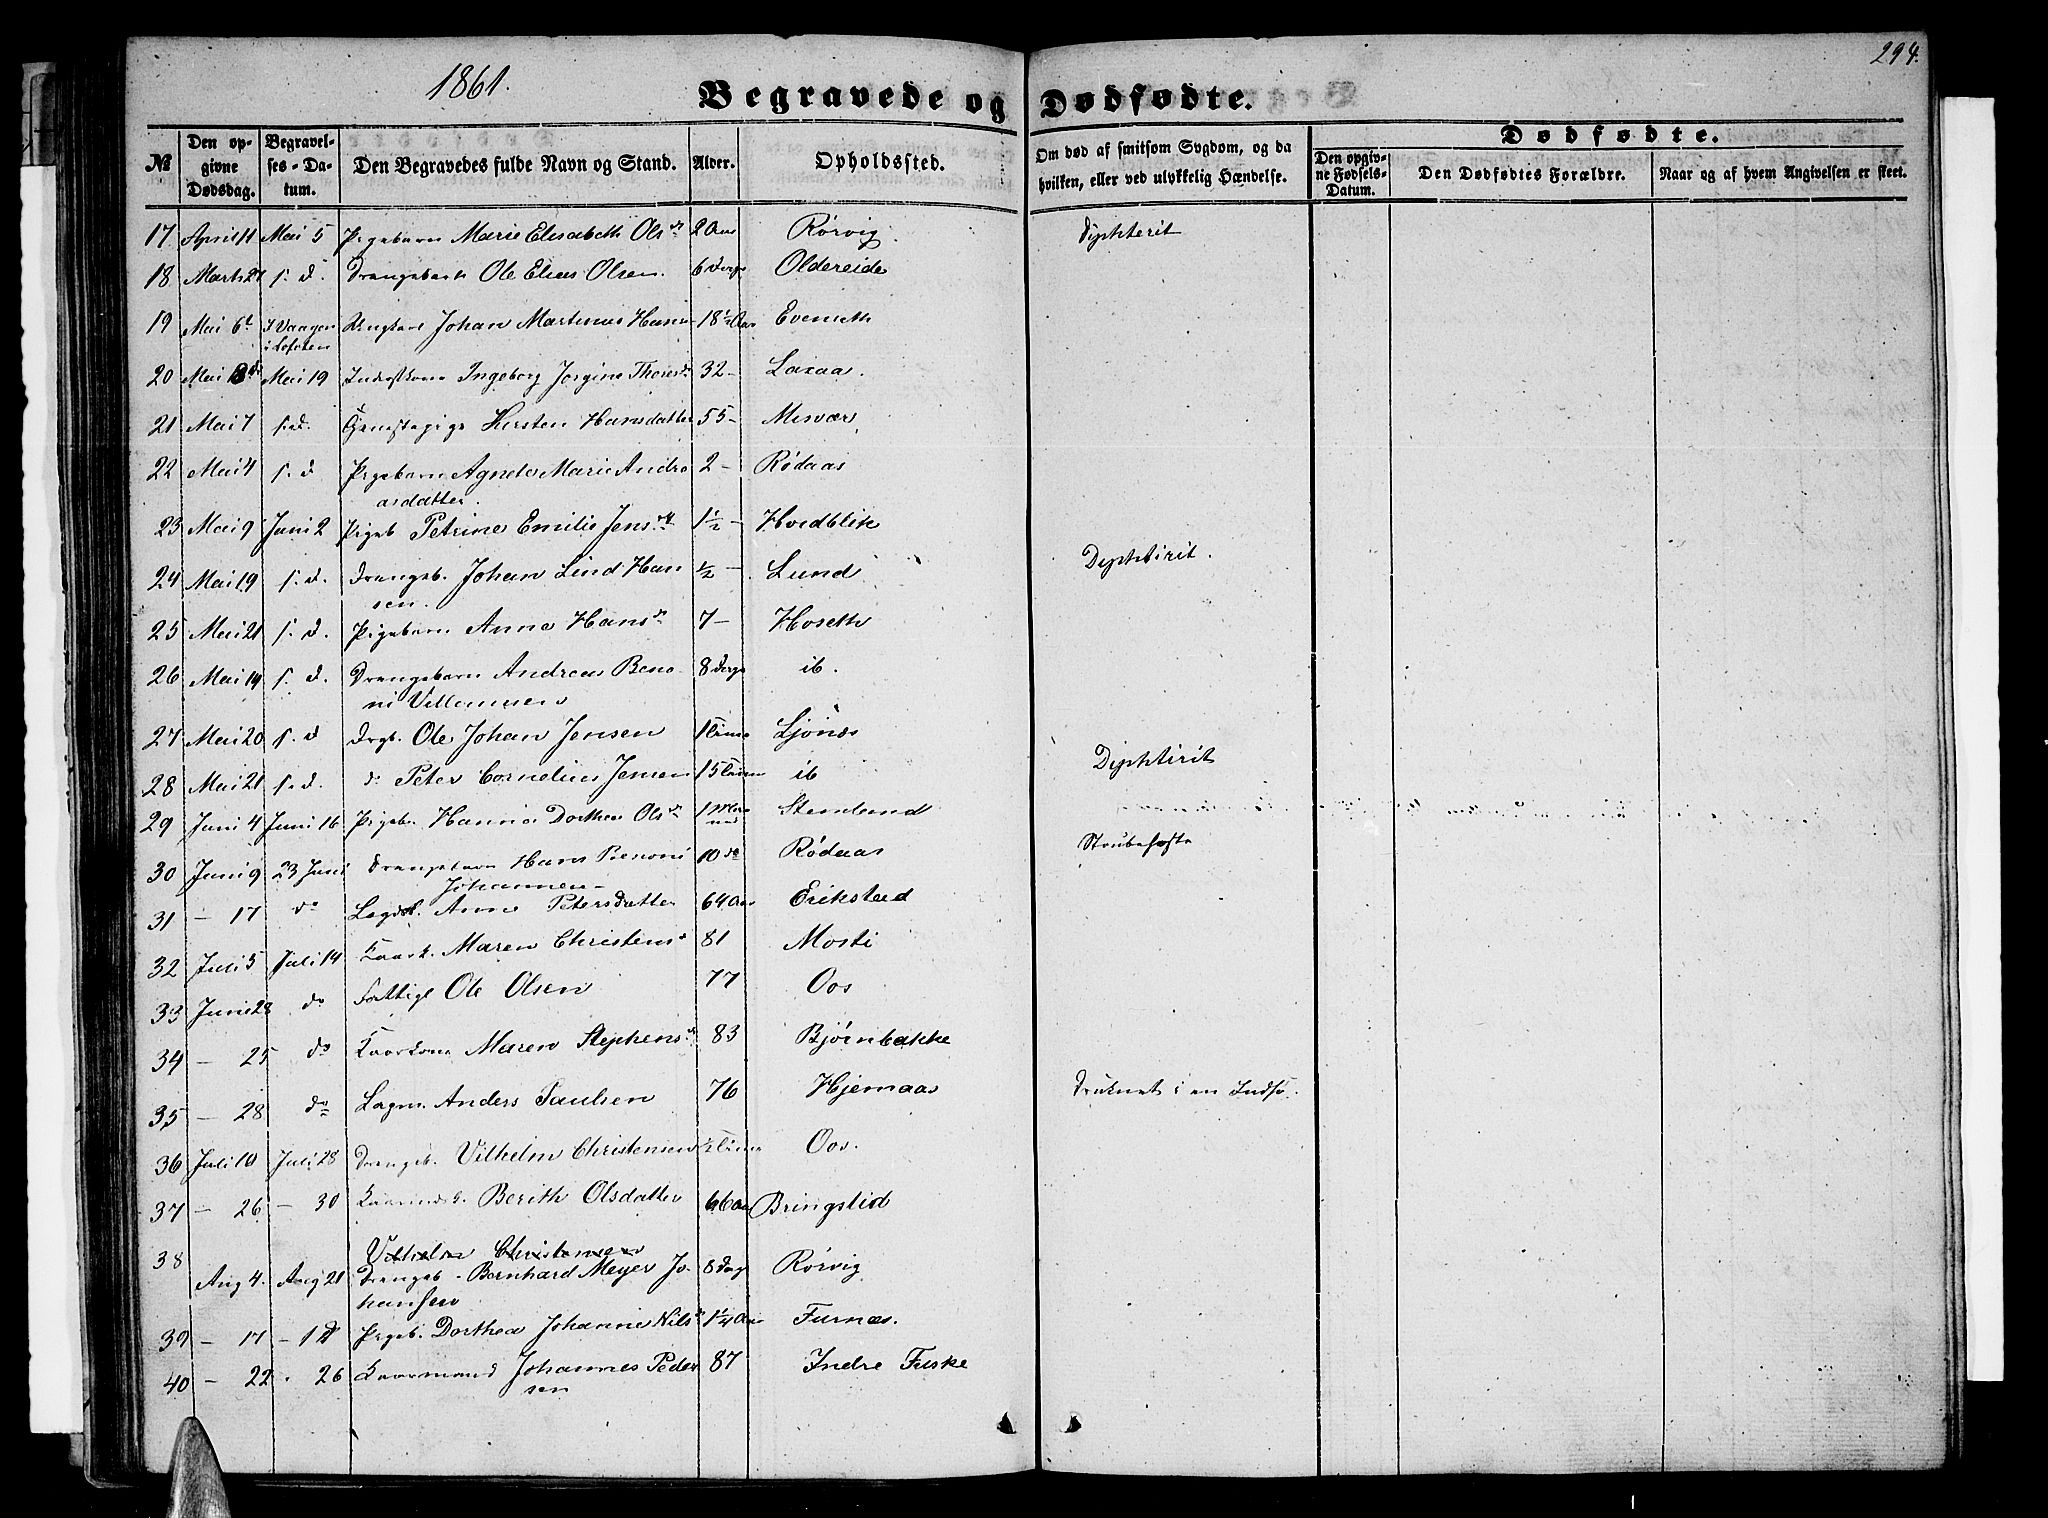 294.
1861.
Begravede og Dødfødte.
№ Den opgivne Dødsdag. Begravelses-Datum. Den Begravedes fulde Navn og Stand. Alder. Opholdssted. Om død af smitsom Sygdom, og da hvilken, eller ved ulykkelig Hændelse. Dødfødte. Den opgivne Fødsels-Datum. Den Dødfødtes Forældre. Naar og af hvem Angivelsen er skeet.
17 April 11 Mai 5 Pigebarn Marie Elisabeth Olsdr 2 Aar Rørvig Diphterit
18 Marts 27 s. d. Drengebarn Ole Elias Olsen 6 Dage Oldereide
19 Mai 6te I Vaagen i Lofoten Ungkarl Johan Martinus Hans 18½ Aar Evenseth
20 Mai 8de Mai 19 Inderstkone Ingeborg Jorgine Thoresdr 32 - Laxaa.
21 Mai 7 s. d. Tjenestepige Kirsten Hansdatter 55 - Misvær
22 Mai 4 s. d Pigebarn Agnete Marie Andre 2 - Rødaas
asdatter.
23 Mai 9 Juni 2 Pigeb Petrine Emilie Jensdr 1½ - Hvidblik
24 Mai 19 s. d. Drengeb. Johan Lind Han ½ - Lund Diphtirit.
sen.
25 Mai 21 s. d. Pigebarn Anne Hansdr 7 - Hoseth
26 Mai 14 s. d. Drengebarn Andreas Beno- 8 Dage ib.
ni Villumsen
27 Mai 20 s. d Drgb. Ole Johan Jensen 1 Time Ljønes
28 Mai 21 s. d. do Peter Cornelius Jensen 15 Timer ib Diphtirit
29 Juni 4 Juni 16 Pigeb. Hanna Dorthea Olsdr 1 Maaned Stenlund
30 Juni 9 23 Juni Drengebarn Hans Benoni 10 do Rødaas Strubehoste
Johannesen -
31 - 17 do Lægdsl. Anne Petersdatter 64 Aar Erikstad
32 Juli 5 Juli 14 Kaark. Maren Christensd 81 Mosti
33 Juni 28 do Fattige Ole Olsen 77 Oos
34 - 25 do Kaarkone Maren Stephensdr 83 Bjørnbakke
35 - 28 do Lægm. Anders Paulsen 76 Hjemaas Druknet i en Indsø.
36 Juli 10 Juli 28 Drengeb. Vilhelm Christensen ½ Time Oos.
37 - 26 - 30 Berith Olsdatter 66 Aar Bringslid
38 Vilhelm Christensen
Aug 4. Aug 21 Drengeb - Bernhard Meyer Jo- 8 Dage Rørvig
hansen
39 - 17 - 18 Pigeb. Dorthea Johanne Nilsdr 1¼ Aar Furnes.
40 - 22 - 26 Kaarmand Johannes Peder 87 Indre Fuske
sen